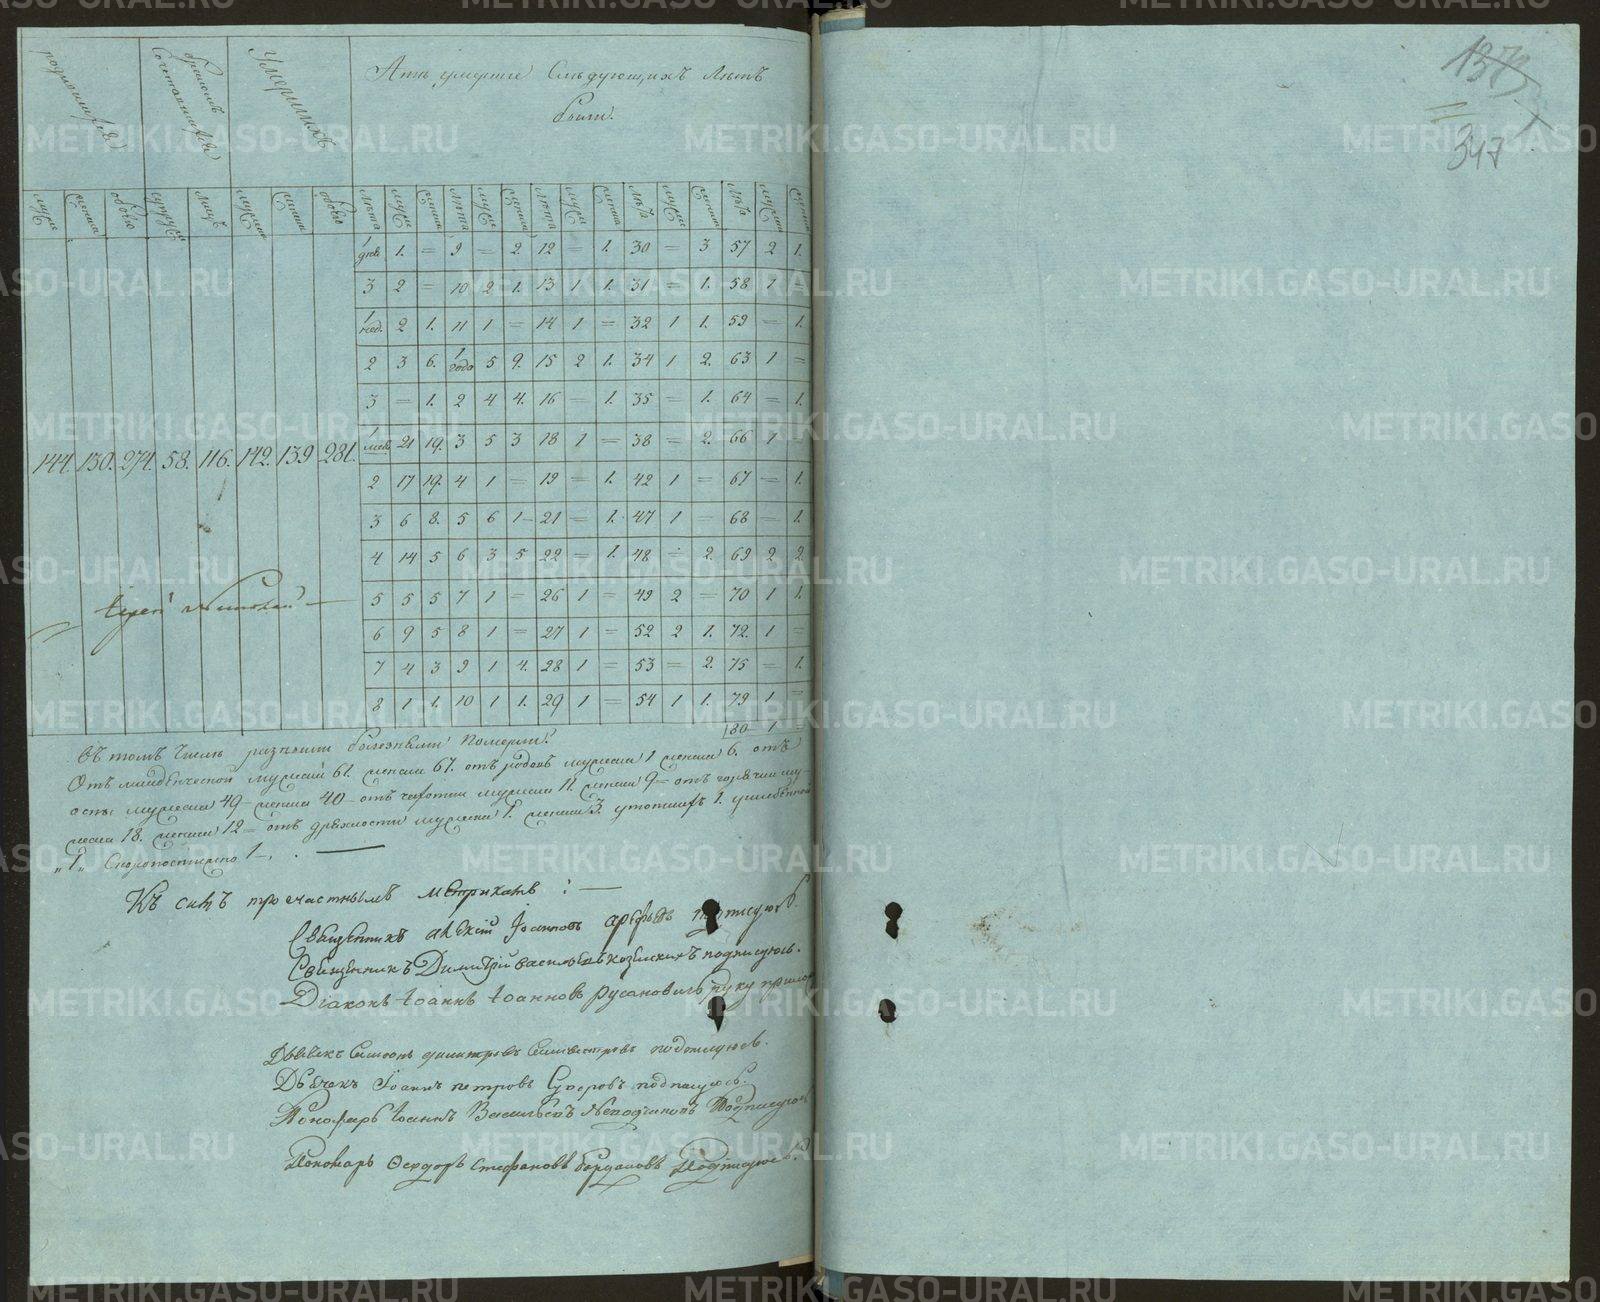 родившихся
бракомъ сочетавшихся
умершихъ
Лѣтъ умершие Слѣдующихъ Лѣтъ
были.
муж женска обоего супруж лицъ мужеска женска обоего лѣта муж женска лѣта муж женска лѣта муж женска лѣта муж женска лѣта муж женска
1 дне 1. = 9 = 2. 12 = 1. 30 = 3 57 2 1.
3 2 = 10 2 1. 13 1 1. 31 = 1. 58 1 =
1 нед. 2 1. 11 1 = 14 1 = 32 1 1. 59 = 1.
2 3 6. 1 года 5 9. 15 2 1. 34 1 2. 63 1 =
3 = 1. 2 4 4. 16 = 1. 35 = 1. 64 = 1.
1 мес. 21 19. 3 5 3 18 1 = 38 = 2. 66 1
144. 130. 274. 58. 116. 142. 139 281.
2 17 19. 4 1 = 19 = 1. 42 1 = 67 = 1.
3 6 8. 5 6 1 21 = 1. 47 1 = 68 = 1.
4 14 5 6 3 5 22 = 1. 48 = 2. 69 2 2.
5 5 5 7 1 = 26 1 = 49 2 = 70 1 1.
6 9 5 8 1 = 27 1 = 52 2 1. 72. 1 =
7 4 3 9 1 4. 28 1 = 53 = 2. 75 = 1.
8 1 1. 10 1 1. 29 1 = 54 1 1. 79 1 =
80 1 =
Іерей Николай
Въ томъ числѣ разными болезньми померли:
Отъ младенческой мужеска 61. женска 67. отъ родовъ мужеска 1 женска 6. отъ
оспы мужеска 49 женска 40 отъ чахотки мужеска 11. женска 9 отъ горячки му
жеска 18. женска 12 отъ древности мужеска 1. женска 3. утопшихъ 1.
„1„ Скоропостижно 1
Къ симъ прочастнымъ метрикамъ:
Священникъ алексій Іоанновъ арефьевъ подписуюсь.
Священникъ Димитрій васильевъ козелскихъ подписуюсь.
Діаконъ Іоаннъ Іоанновъ русановичь руку прилож
Дьячекъ Симеонъ димитровъ Селивестровъ подписуюсь.
Дьячекъ Іоаннъ петровъ Суворовъ подписуюсь.
Пономарь Іоаннъ Васильевъ Неподчиновъ Подписуюсь
Пономарь Ѳеодоръ стефановъ богдановъ Подписуюсь.
1373
347
METRIKI.GASO-URAL.RU